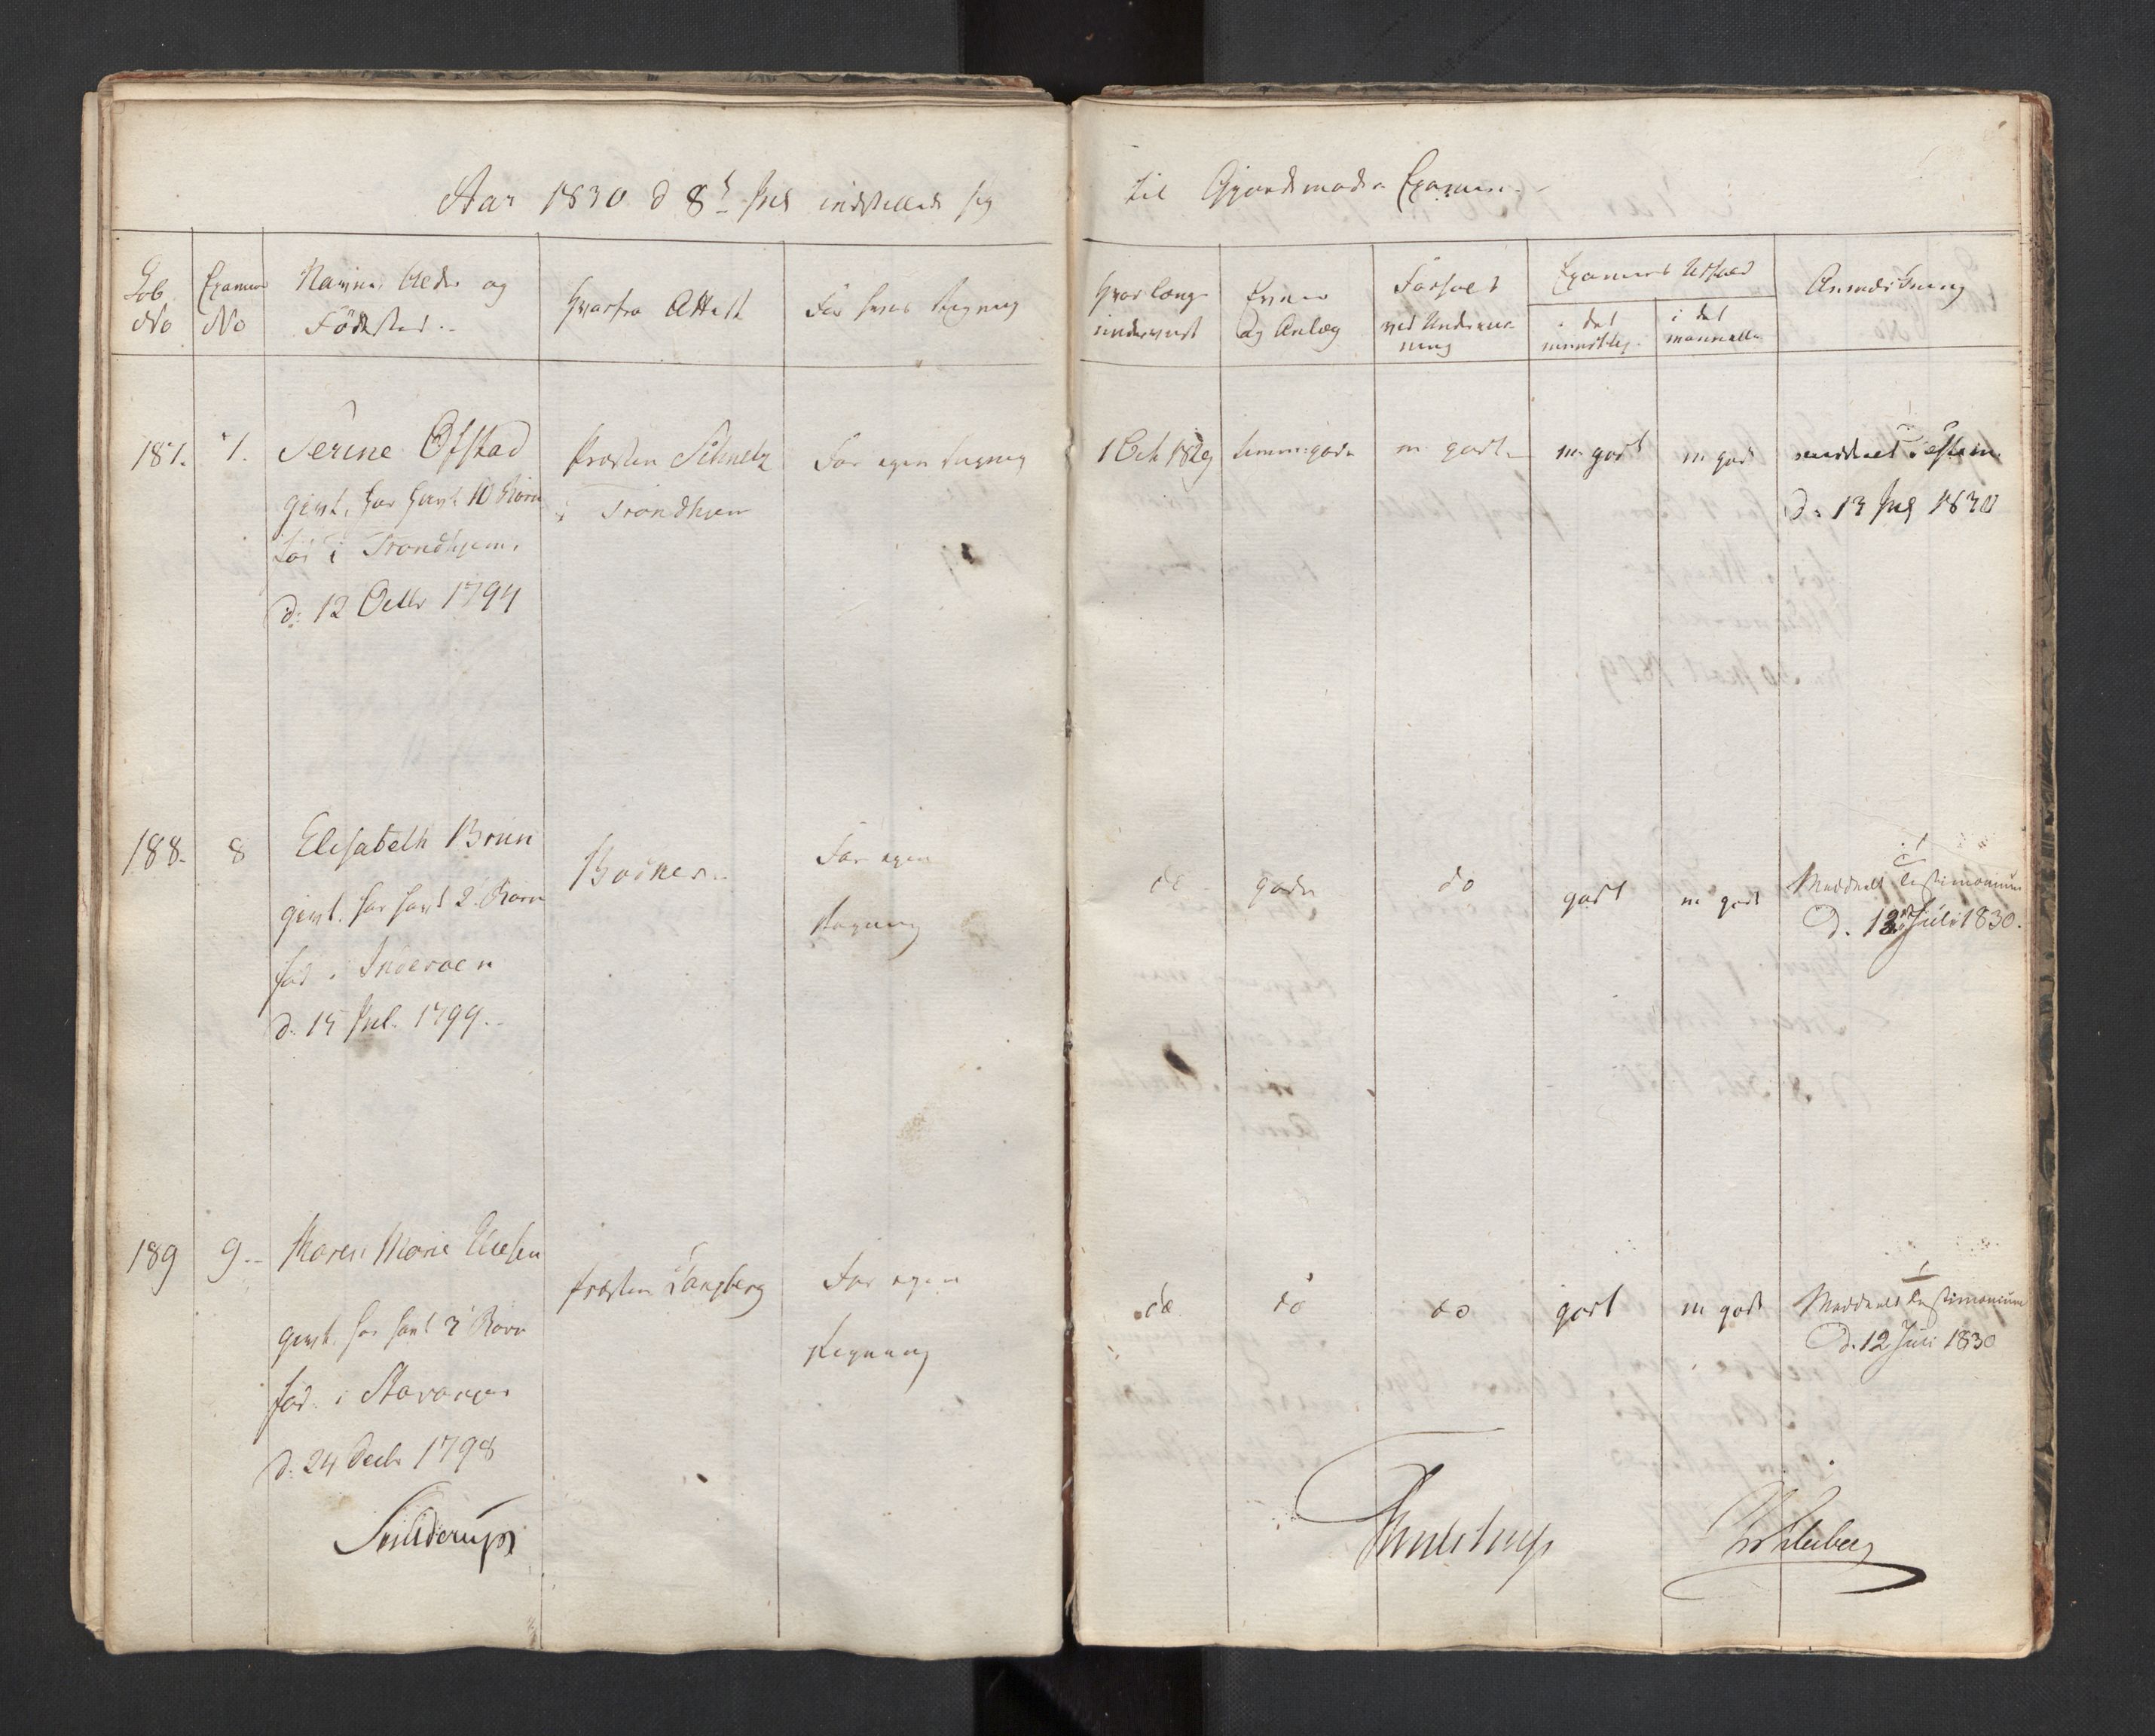 Aar 1830 d 8 Juli indstillede sig
til Gjordemoder Examen
Lob. No
Examens No
Navne Alder og
Födested
Hvorfra Attest
For hvis Regning
Hvor længe
underviist
Evner
og Anlæg
Forhold
ved Undervis-
ning
Examens Udfald
i det
mundtlig
i det
manuelle
Anmærkning
187. 7. Serine Offstad
givt, har havt 10 Børn
föd i Trondhjem
d: 12 Octbr 1794
Præsten Schnelz
i Trondhjem
For egen Regning
1 Oct 1829
m godt
m godt
m godt
meddelt Testim.
d: 13 Juli 1830
188. 8 Elisabeth Brun
givt. har havt 2 Børn
föd i Inderøen
d: 15 Jul. 1799.
For egen
Regning
do
gode
do
godt
m godt
Meddeelt Testimonium
D. 12 Juli 1830.
189 9. Maren Marie
givt. har havt 3 Børn
föd. i Stavanger
d. 24 Decbr 1798
Præsten Langberg
For egen
Regning
do
do
do
godt
m godt
Meddeelt Testimonium
D. 12 Juli 1830
Skielderup
Thulstrup